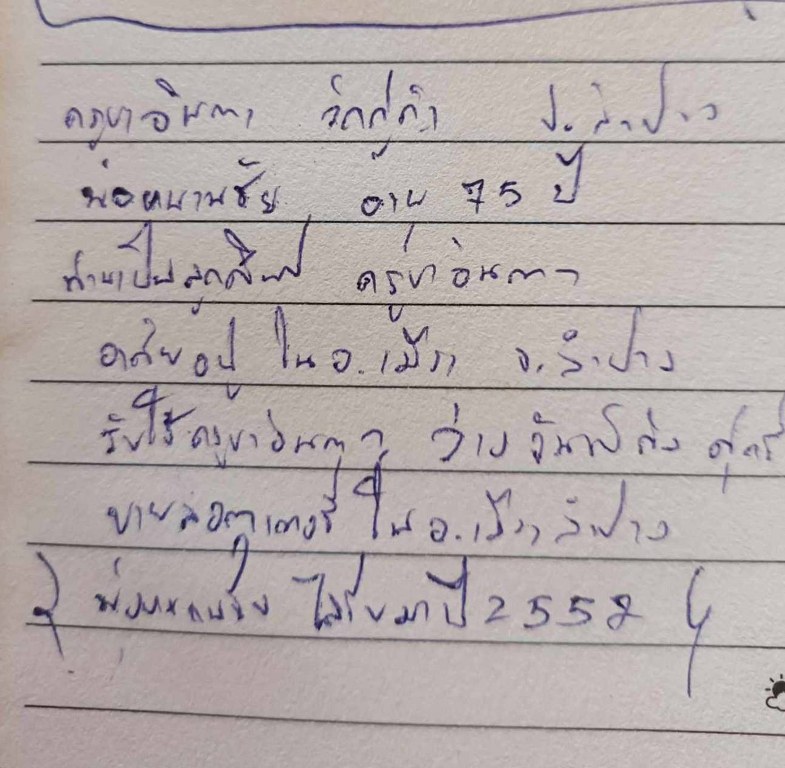 ครูบาอินตา วัดศูค้ำ จ.ลำปาง
พ่อหนานชัย อายุ 75 ปี
ท่านเป็นลูกศิษย์ ครูบาอินตา
อาศัยอยู่ ใน อ.เมือง จ.ลำปาง
รับใช้ครูบาอินตา ว่าง จันทร์ ถึง ศุกร์
ขายลอตเตอรี่ ใน อ.เมือง ลำปาง
พ่อหนานชัย ได้รับมาปี 2552